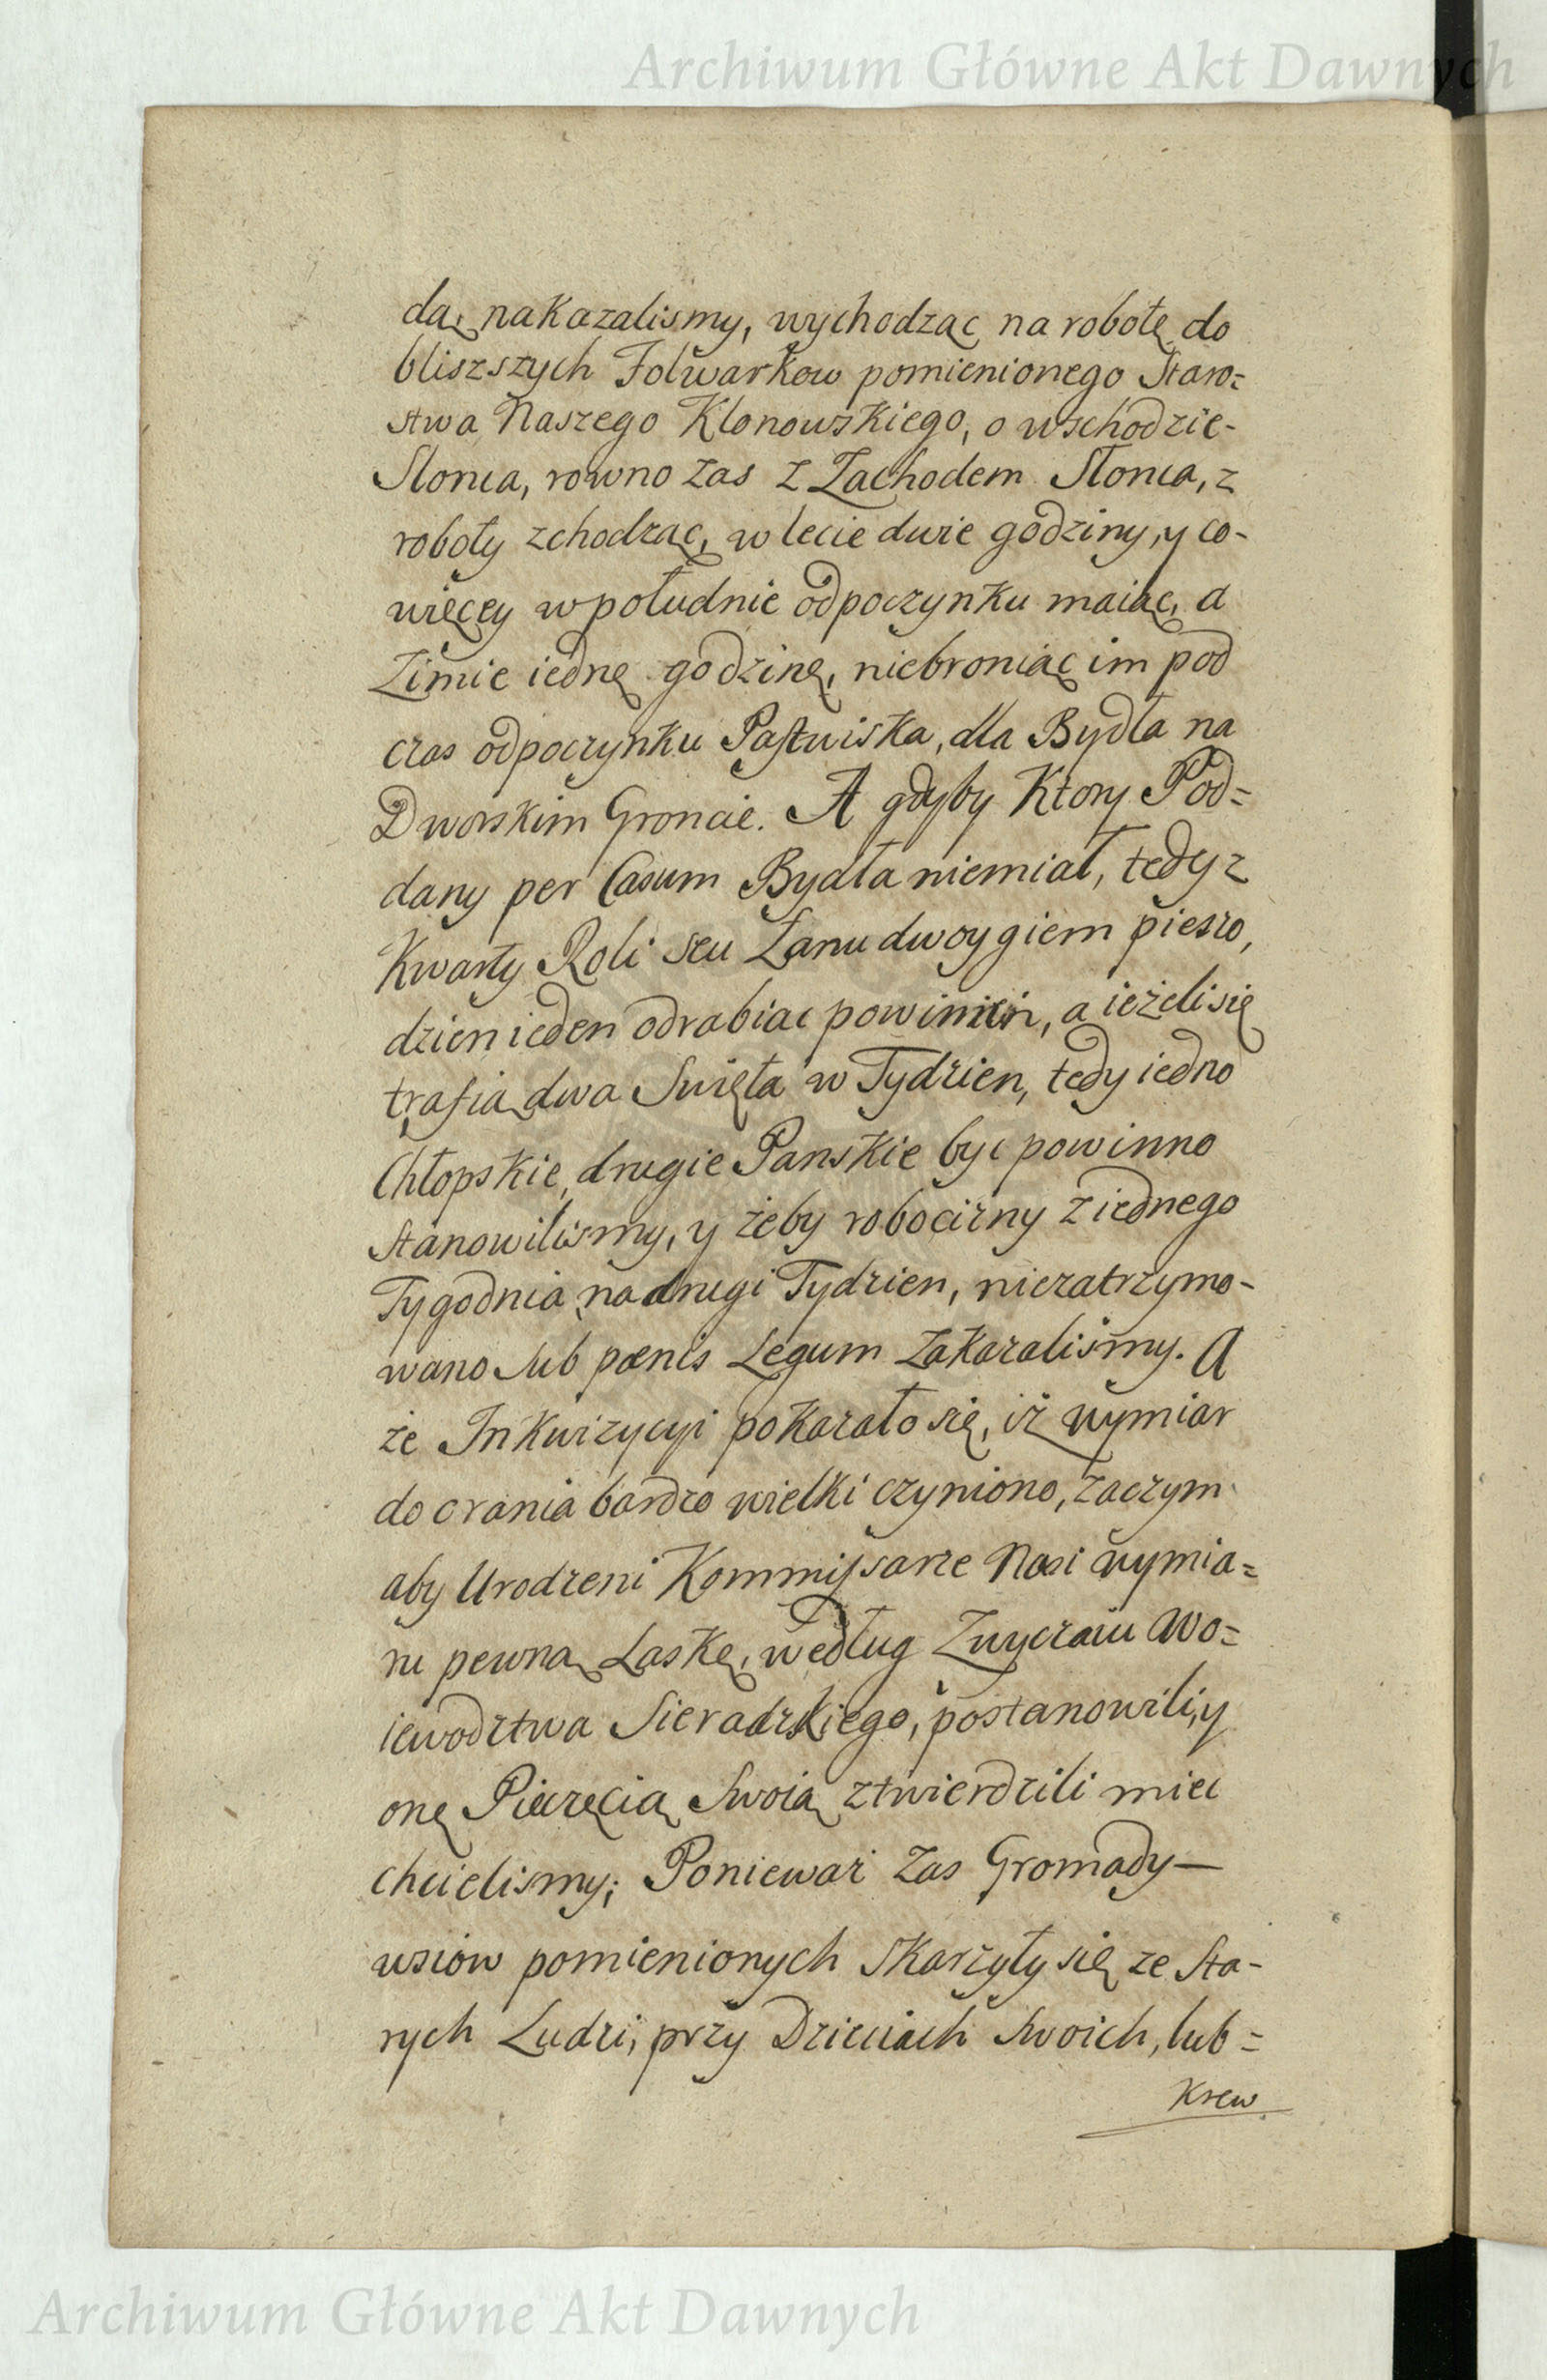 Archiwum Główne Akt Dawnych
dą, nakazalismy, wychodząc na robotę do
bliszszych Folwarkow pomienionego Staro=
stwa Naszego Klonowskiego, o wschodzie-
Słonca, rowno zas z Zachodem Słonca, z
roboty zchodząc, w lecie dwie godziny, y co-
więcey w południe odpoczynku maiąc, a
Zimie iednę godzinę, niebroniąc im pod
czas odpoczynku Pastwiska, dla Bydła na
Dworskim Groncie. A gdyby Ktory Pod=
dany per Casum Bydła niemiał, tedy z
Kwarty Roli seu Łanu dwoygiem pieszo,
dzien ieden odrabiac powinien, a ieżeli się
trafią dwa Swięta w Tydzien, tedy iedno
Chłopskie, drugie Panskie byc powinno
stanowilismy, y żeby robocizny z iednego
Tygodnia na drugi Tydzien, niezatrzymo-
wano sub pœnis Legum zakazalismy. A
że Inkwizycyi pokazało się, iż wymiar
do orania bardzo wielki czyniono, zaczym
aby Urodzeni Kommissarze Nasi wymia=
ru pewną Laskę, według Zwyczaiu Wo=
iewodztwa Sieradzkiego, postanowili, y
onę Pieczęcią Swoią ztwierdzili miec
chcielismy; Ponieważ zas Gromady—
wsiow pomienionych skarżyły się ze Sta-
rych Ludzi, przy Dzieciach Swoich, lub=
Krew
Archiwum Główne Akt Dawnych